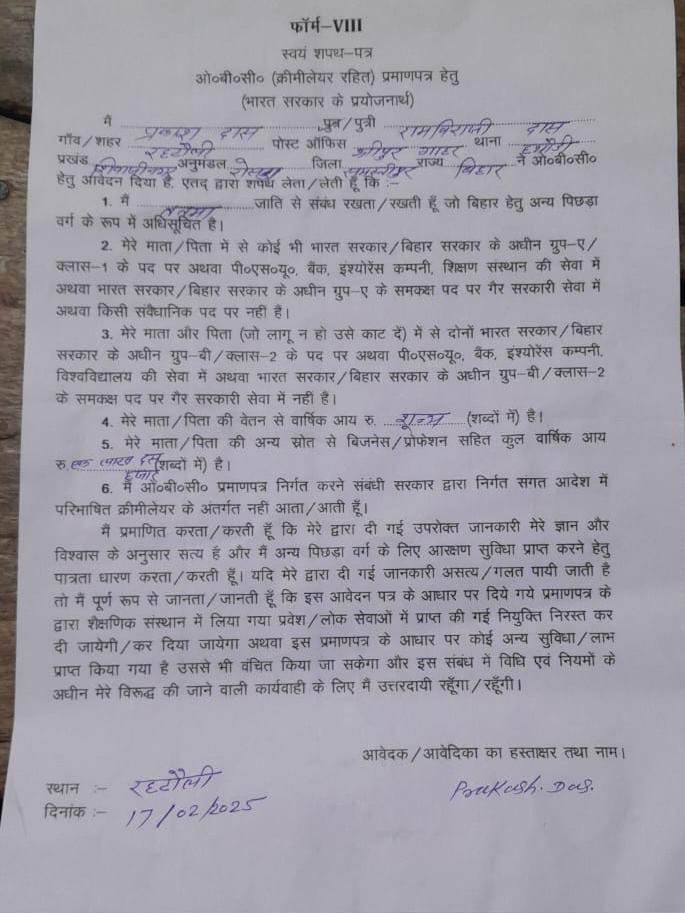 फॉर्म-VIII
स्वयं शपथ-पत्र
ओ०बी०सी० (क्रीमीलेयर रहित) प्रमाणपत्र हेतु
(भारत सरकार के प्रयोजनार्थ)
मैं प्रकाश दास पुत्र/पुत्री रामबिराजी दास
गाँव/शहर रहटौली पोस्ट ऑफिस श्रीपुर गाहर थाना
प्रखंड शिवाजीनगर अनुमंडल रोसड़ा जिला समस्तीपुर राज्य बिहार ने ओ०बी०सी०
हेतु आवेदन दिया है, एतद् द्वारा शपथ लेता/लेती हूँ कि :-
1. मैं तत्मा जाति से संबंध रखता/रखती हूँ जो बिहार हेतु अन्य पिछड़ा
वर्ग के रूप में अधिसूचित है।
2. मेरे माता/पिता में से कोई भी भारत सरकार/बिहार सरकार के अधीन ग्रुप-ए/
क्लास-1 के पद पर अथवा पी०एस०यू०, बैंक, इंश्योरेंस कम्पनी, शिक्षण संस्थान की सेवा में
अथवा भारत सरकार/बिहार सरकार के अधीन ग्रुप-ए के समकक्ष पद पर गैर सरकारी सेवा में
अथवा किसी संवैधानिक पद पर नहीं है।
3. मेरे माता और पिता (जो लागू न हो उसे काट दें) में से दोनों भारत सरकार/बिहार
सरकार के अधीन ग्रुप-बी/क्लास-2 के पद पर अथवा पी०एस०यू०, बैंक, इंश्योरेंस कम्पनी,
विश्वविद्यालय की सेवा में अथवा भारत सरकार/बिहार सरकार के अधीन ग्रुप-बी/क्लास-2
के समकक्ष पद पर गैर सरकारी सेवा में नहीं है।
4. मेरे माता/पिता की वेतन से वार्षिक आय रु. शून्य (शब्दों में) है।
5. मेरे माता/पिता की अन्य स्रोत से बिजनेस/प्रोफेशन सहित कुल वार्षिक आय
रु. एक लाख दस हजार (शब्दों में) है।
6. मैं ओ०बी०सी० प्रमाणपत्र निर्गत करने संबंधी सरकार द्वारा निर्गत संगत आदेश में
परिभाषित क्रीमीलेयर के अंतर्गत नहीं आता/आती हूँ।
मैं प्रमाणित करता/करती हूँ कि मेरे द्वारा दी गई उपरोक्त जानकारी मेरे ज्ञान और
विश्वास के अनुसार सत्य है और मैं अन्य पिछड़ा वर्ग के लिए आरक्षण सुविधा प्राप्त करने हेतु
पात्रता धारण करता/करती हूँ। यदि मेरे द्वारा दी गई जानकारी असत्य/गलत पायी जाती है
तो मैं पूर्ण रूप से जानता/जानती हूँ कि इस आवेदन पत्र के आधार पर दिये गये प्रमाणपत्र के
द्वारा शैक्षणिक संस्थान में लिया गया प्रवेश/लोक सेवाओं में प्राप्त की गई नियुक्ति निरस्त कर
दी जायेगी/कर दिया जायेगा अथवा इस प्रमाणपत्र के आधार पर कोई अन्य सुविधा/लाभ
प्राप्त किया गया है उससे भी वंचित किया जा सकेगा और इस संबंध में विधि एवं नियमों के
अधीन मेरे विरूद्ध की जाने वाली कार्यवाही के लिए मैं उत्तरदायी रहूँगा/रहूँगी।
आवेदक/आवेदिका का हस्ताक्षर तथा नाम।
स्थान :- रहटौली
Prakash. Das.
दिनांक :- 17/02/2025